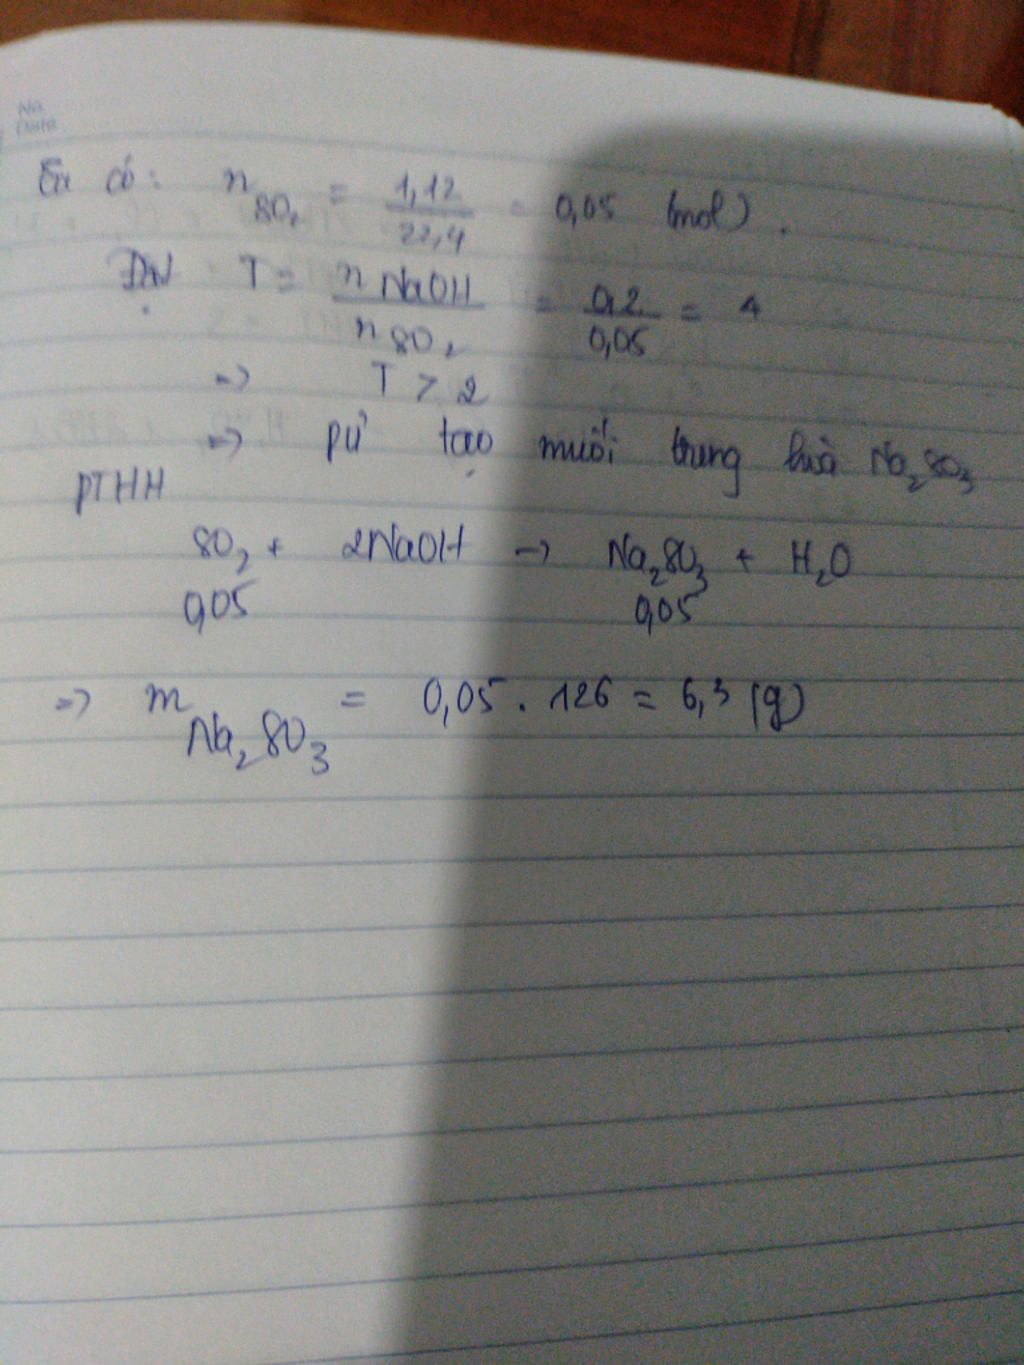 No.
Date
Ta có: n SO₂ = 1,12 / 22,4 = 0,05 (mol).
Đặt T = n NaOH / n SO₂ = 0,2 / 0,05 = 4
=> T > 2
=> pứ tạo muối trung hoà Na₂SO₃
PTHH
SO₂ + 2NaOH -> Na₂SO₃ + H₂O
0,05 0,05
=> m Na₂SO₃ = 0,05 . 126 = 6,3 (g)